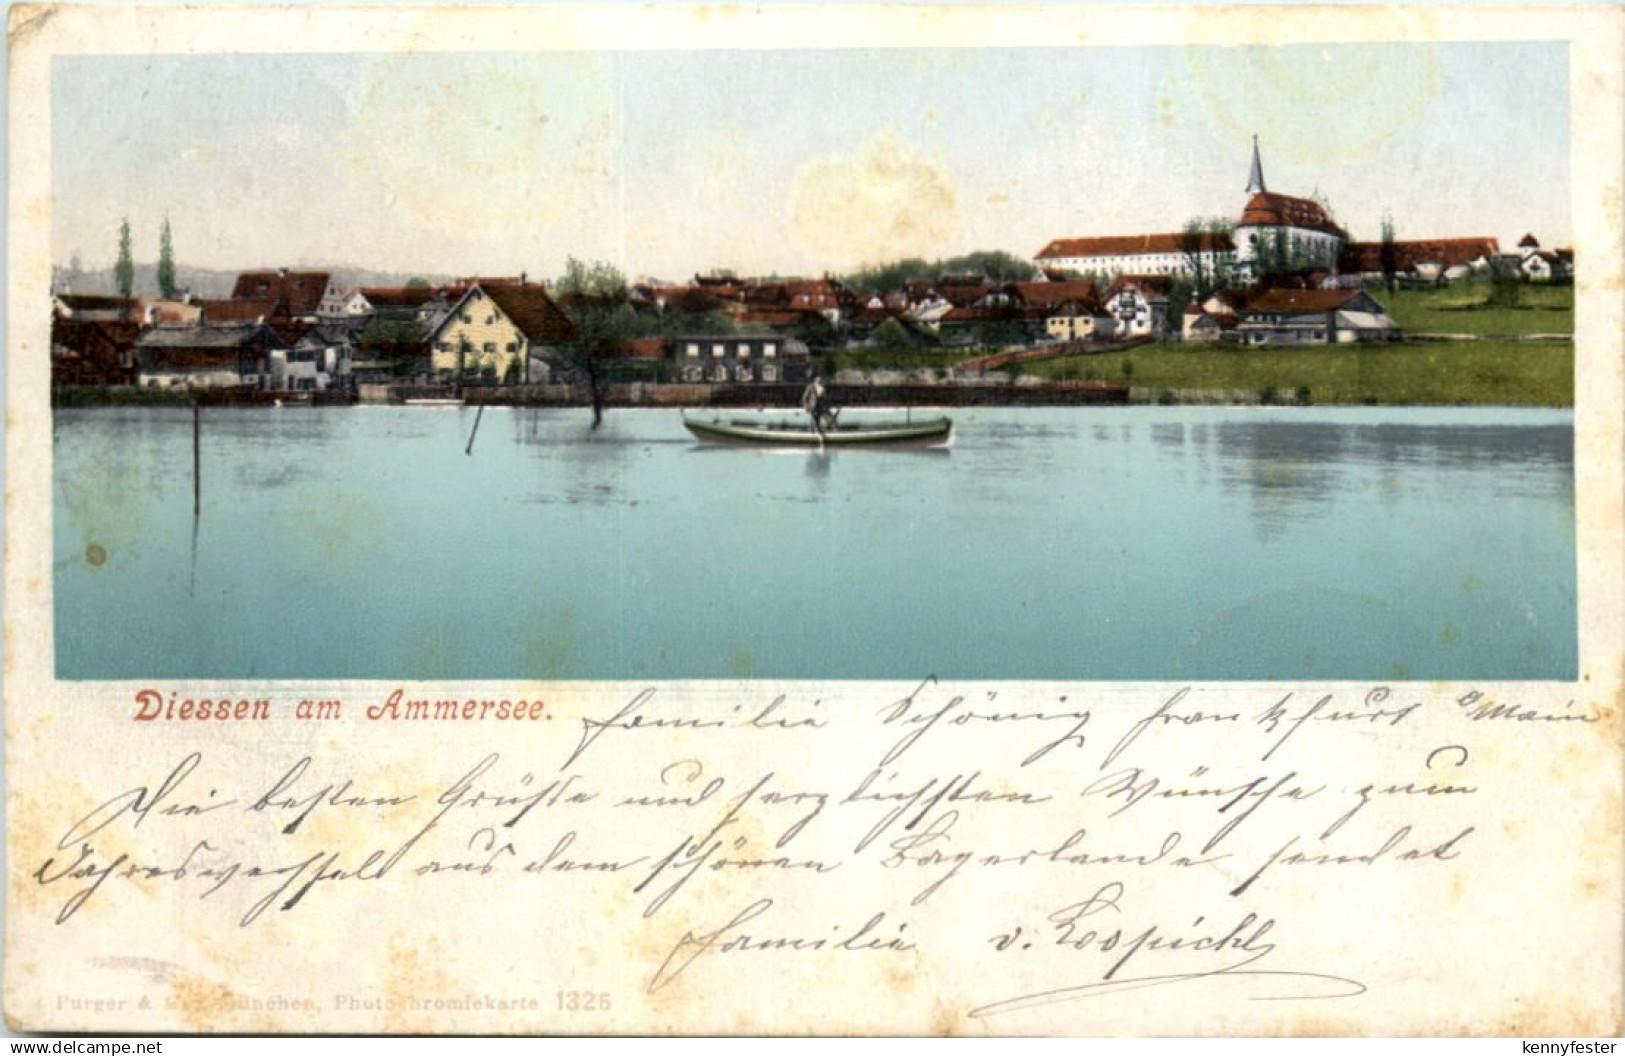 Diessen am Ammersee. Familie Schönig Frankfurt a/Main
Die besten Grüsse und herzlichsten Wünsche zum
Jahreswechsel aus dem schönen Bayerlande sendet
Familie v.
Purger & Co., München, Photochromiekarte 1325
www.delcampe.net
kennyfester